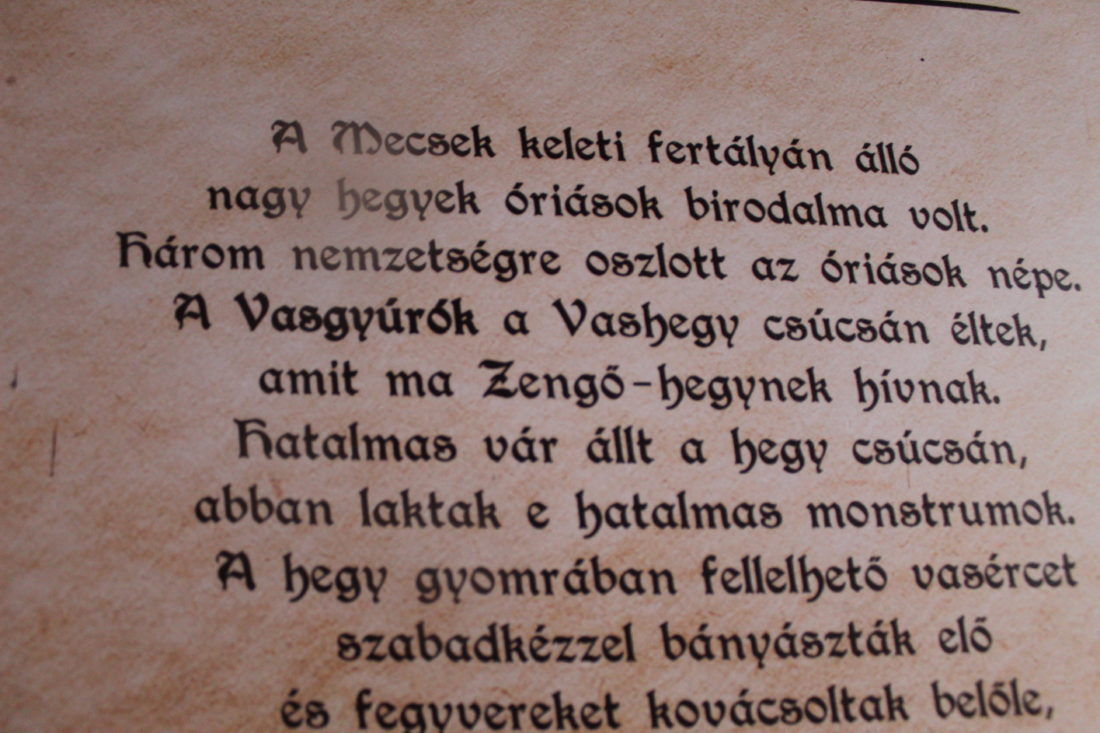 A Mecsek keleti fertályán álló
nagy hegyek óriások birodalma volt.
Három nemzetségre oszlott az óriások népe.
A Vasgyúrók a Vashegy csúcsán éltek,
amit ma Zengő-hegynek hívnak.
Hatalmas vár állt a hegy csúcsán,
abban laktak e hatalmas monstrumok.
A hegy gyomrában fellelhető vasércet
szabadkézzel bányászták elő
és fegyvereket kovácsoltak belőle,